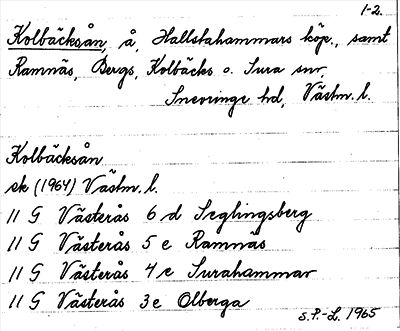 1-2.
Kolbäcksån, å, Hallstahammars köp., samt
Ramnäs, Bergs, Kolbäcks o. Sura snr,
Snevringe hd, Västm. l.
Kolbäcksån
sk (1964) Västm. l.
11 G Västerås 6 d Seglingsberg
11 G Västerås 5 e Ramnäs
11 G Västerås 4 e Surahammar
11 G Västerås 3 e Olberga
S.P.-L. 1965